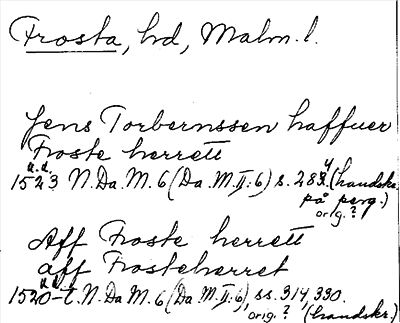 Frosta, hd, Malm. l.
Jens Torbernssen haffuer
Froste herrett
u.d.
1523 N.Da.M. 6 (Da.M.II:6) s. 283. (handskr.
på perg.)
orig.?
Aff Froste herrett
aff Frosteherret
1520-t. N.Da M. 6 (Da.M.II:6), ss. 314, 330.
orig.? (handskr.)